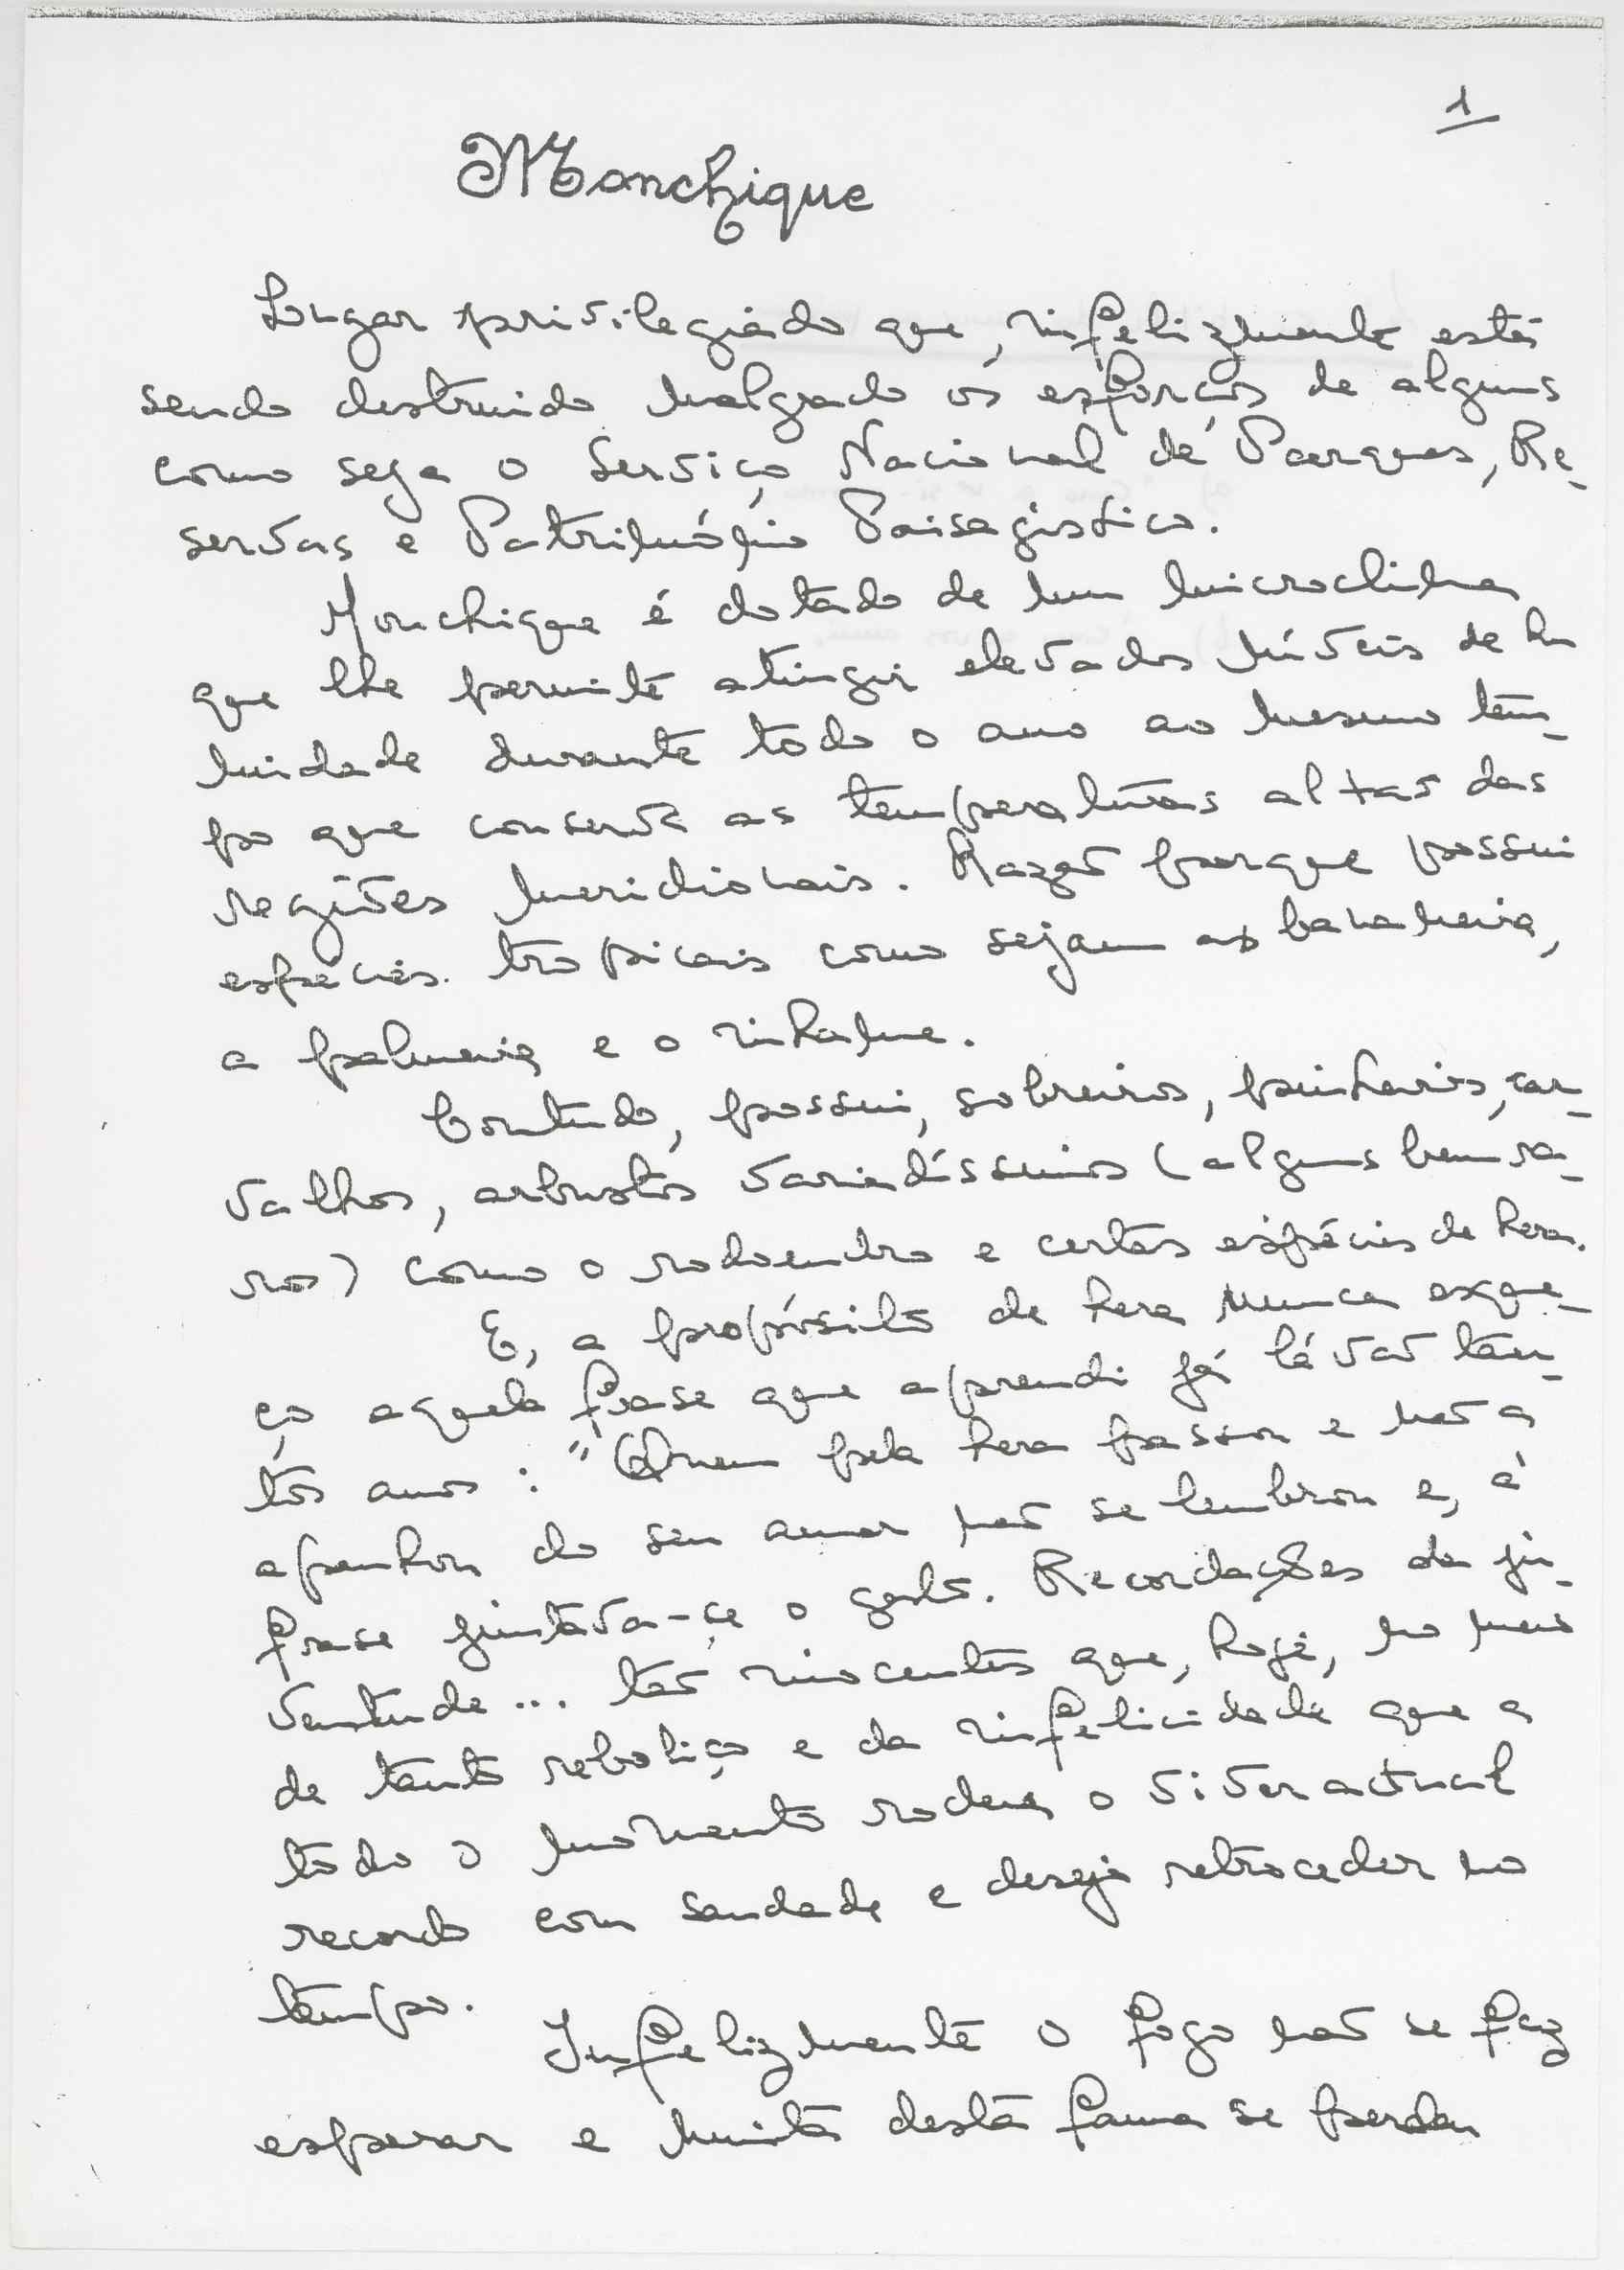 1
Monchique
Lugar privilegiado que, infelizmente está
sendo destruido malgrado os esforços de alguns
como seja o Serviço Nacional de Parques, Re-
servas e Património Paisagístico.
Monchique é dotado de um microclima
que lhe permite atingir elevados níveis de hu
midade durante todo o ano ao mesmo tem-
po que conserva as temperaturas altas das
regiões meridionais. Razão porque possui
espécies tropicais como sejam a bananeira,
a palmeira e o inhame.
Contudo, possui, sobreiros, pinheiros, car-
valhos, arbustos variadíssimos (alguns bem ra-
ros) como o rodoendro e certas espécies de hera.
E, a propósito de hera nunca esque-
ço aquela frase que aprendi já lá vão tan-
tos anos: "Quem pela hera passou e não a
apanhou do seu amor não se lembrou e, à
frase juntava-se o gesto. Recordações da ju-
ventude... tão inocentes que, hoje, no meio
de tanto reboliço e da infelicidade que a
todo o momento rodeia o viver actual
recordo com saudade e desejo retroceder no
tempo.
Infelizmente o fogo não se faz
esperar e muita desta fauna se perdeu